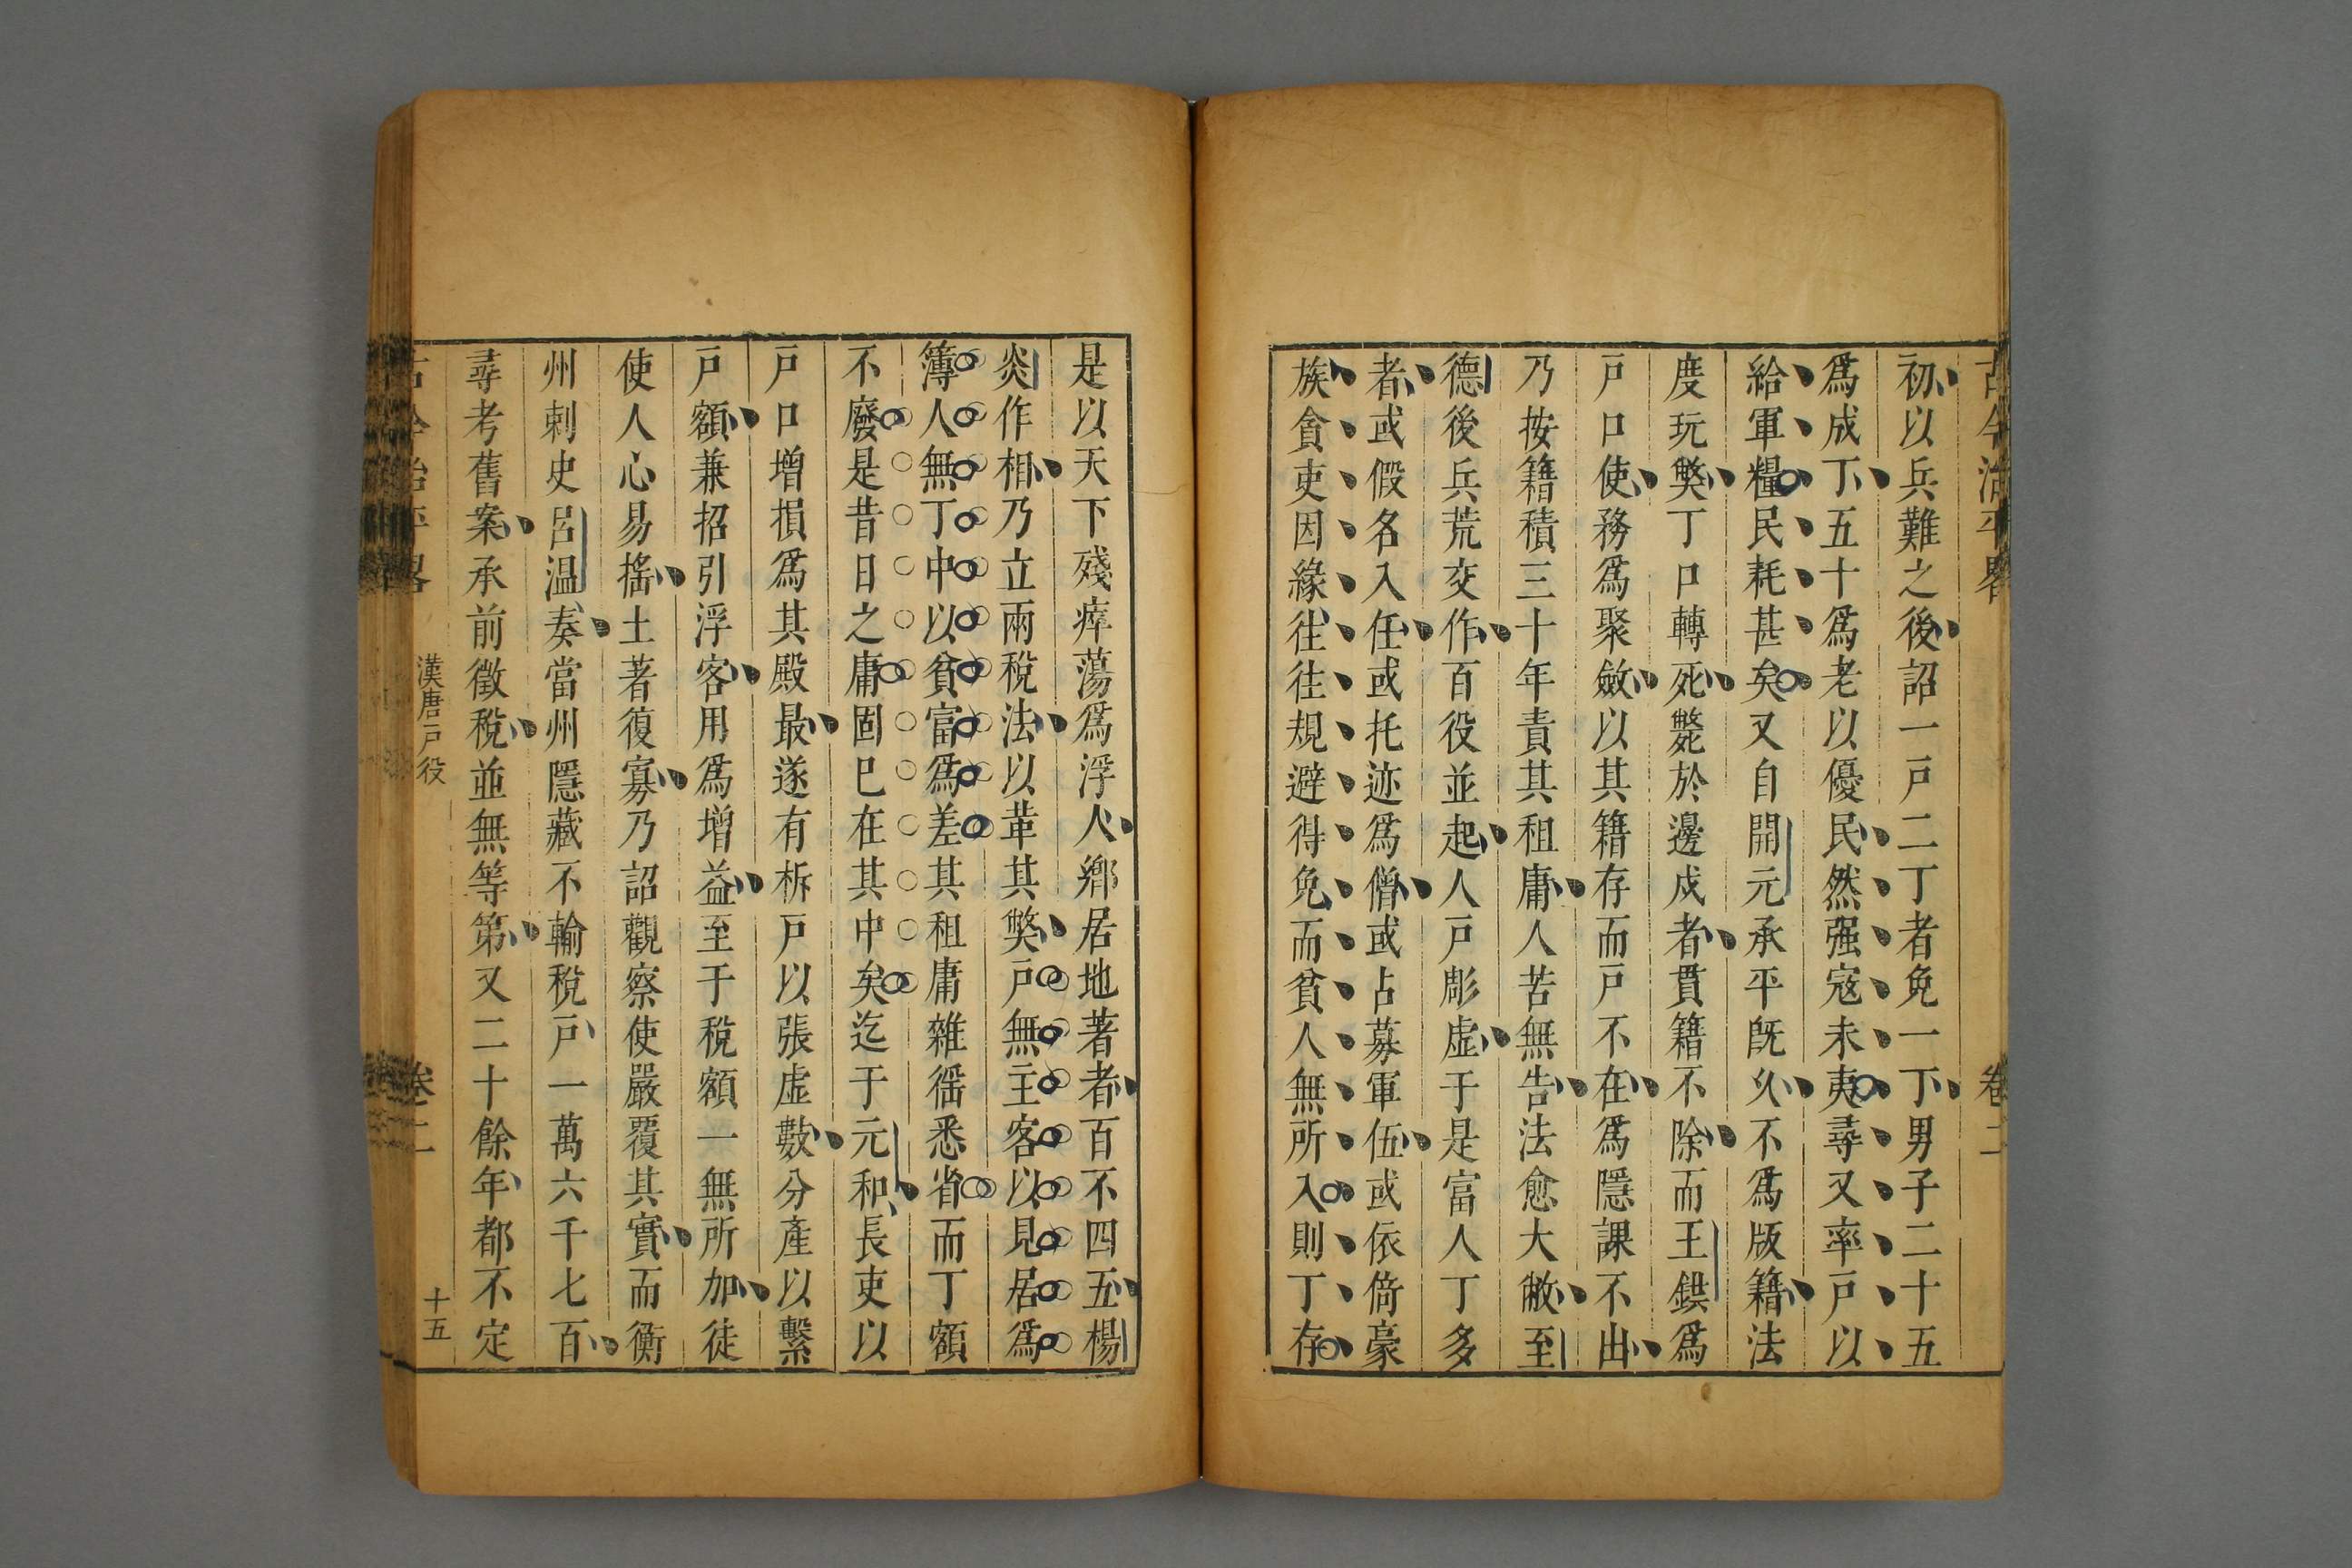 古今治平畧 卷二
初以兵難之後詔一戸二丁者免一丁男子二十五
爲成丁五十爲老以優民然强寇未夷尋又率戸以
給軍糧民耗甚矣又自開元承平旣久不爲版籍法
度玩獘丁口轉死斃於邊戍者貫籍不除而王鉷爲
戸口使務爲聚斂以其籍存而戸不在爲隱課不出
乃按籍積三十年責其租庸人苦無告法愈大敝至
德後兵荒交作百役並起人戸彫虛于是富人丁多
者或假名入任或托迹爲僧或占募軍伍或依倚豪
族貪吏因緣往往規避得免而貧人無所入則丁存
是以天下殘瘁蕩爲浮人鄉居地著者百不四五楊
炎作相乃立兩稅法以革其獘戸無主客以見居爲
簿人無丁中以貧富爲差其租庸雜徭悉省而丁額
不廢是昔日之庸固已在其中矣迄于元和長吏以
戸口增損爲其殿最遂有柝戸以張虛數分產以繫
戸額兼招引浮客用爲增益至于稅額一無所加徒
使人心易搖土著復寡乃詔觀察使嚴覆其實而衡
州刺史呂温奏當州隱藏不輸稅戸一萬六千七百
尋考舊案承前徵稅並無等第又二十餘年都不定
古今治平畧 漢唐戸役 卷二 十五